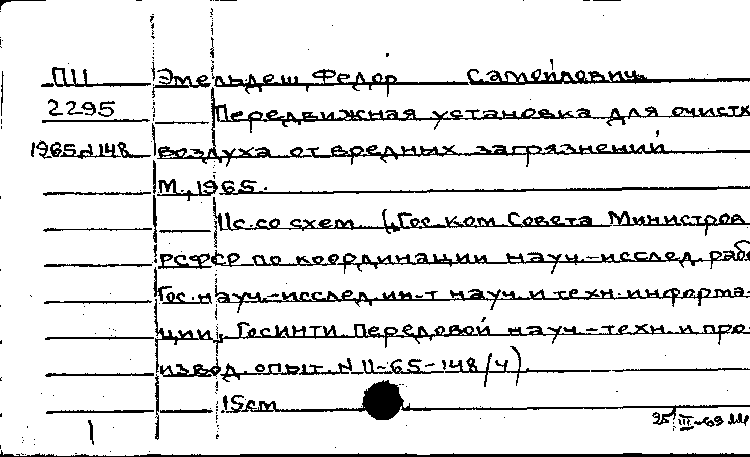 ПЦ Эмельдеш, Федор Самойлович
2295 Передвижная установка для очистк
1965, 148 воздуха от вредных загрязнений
М., 1965.
11с. со схем. (Гос. ком. Совета Министров
РСФСР по координации науч.-исслед. раб
Гос. науч.-исслед. ин-т науч. и техн. информа-
ции, Госинти. Передовой науч.-техн. и про-
извод. опыт. N 11-65-148/4)
15 cm
25/III-69